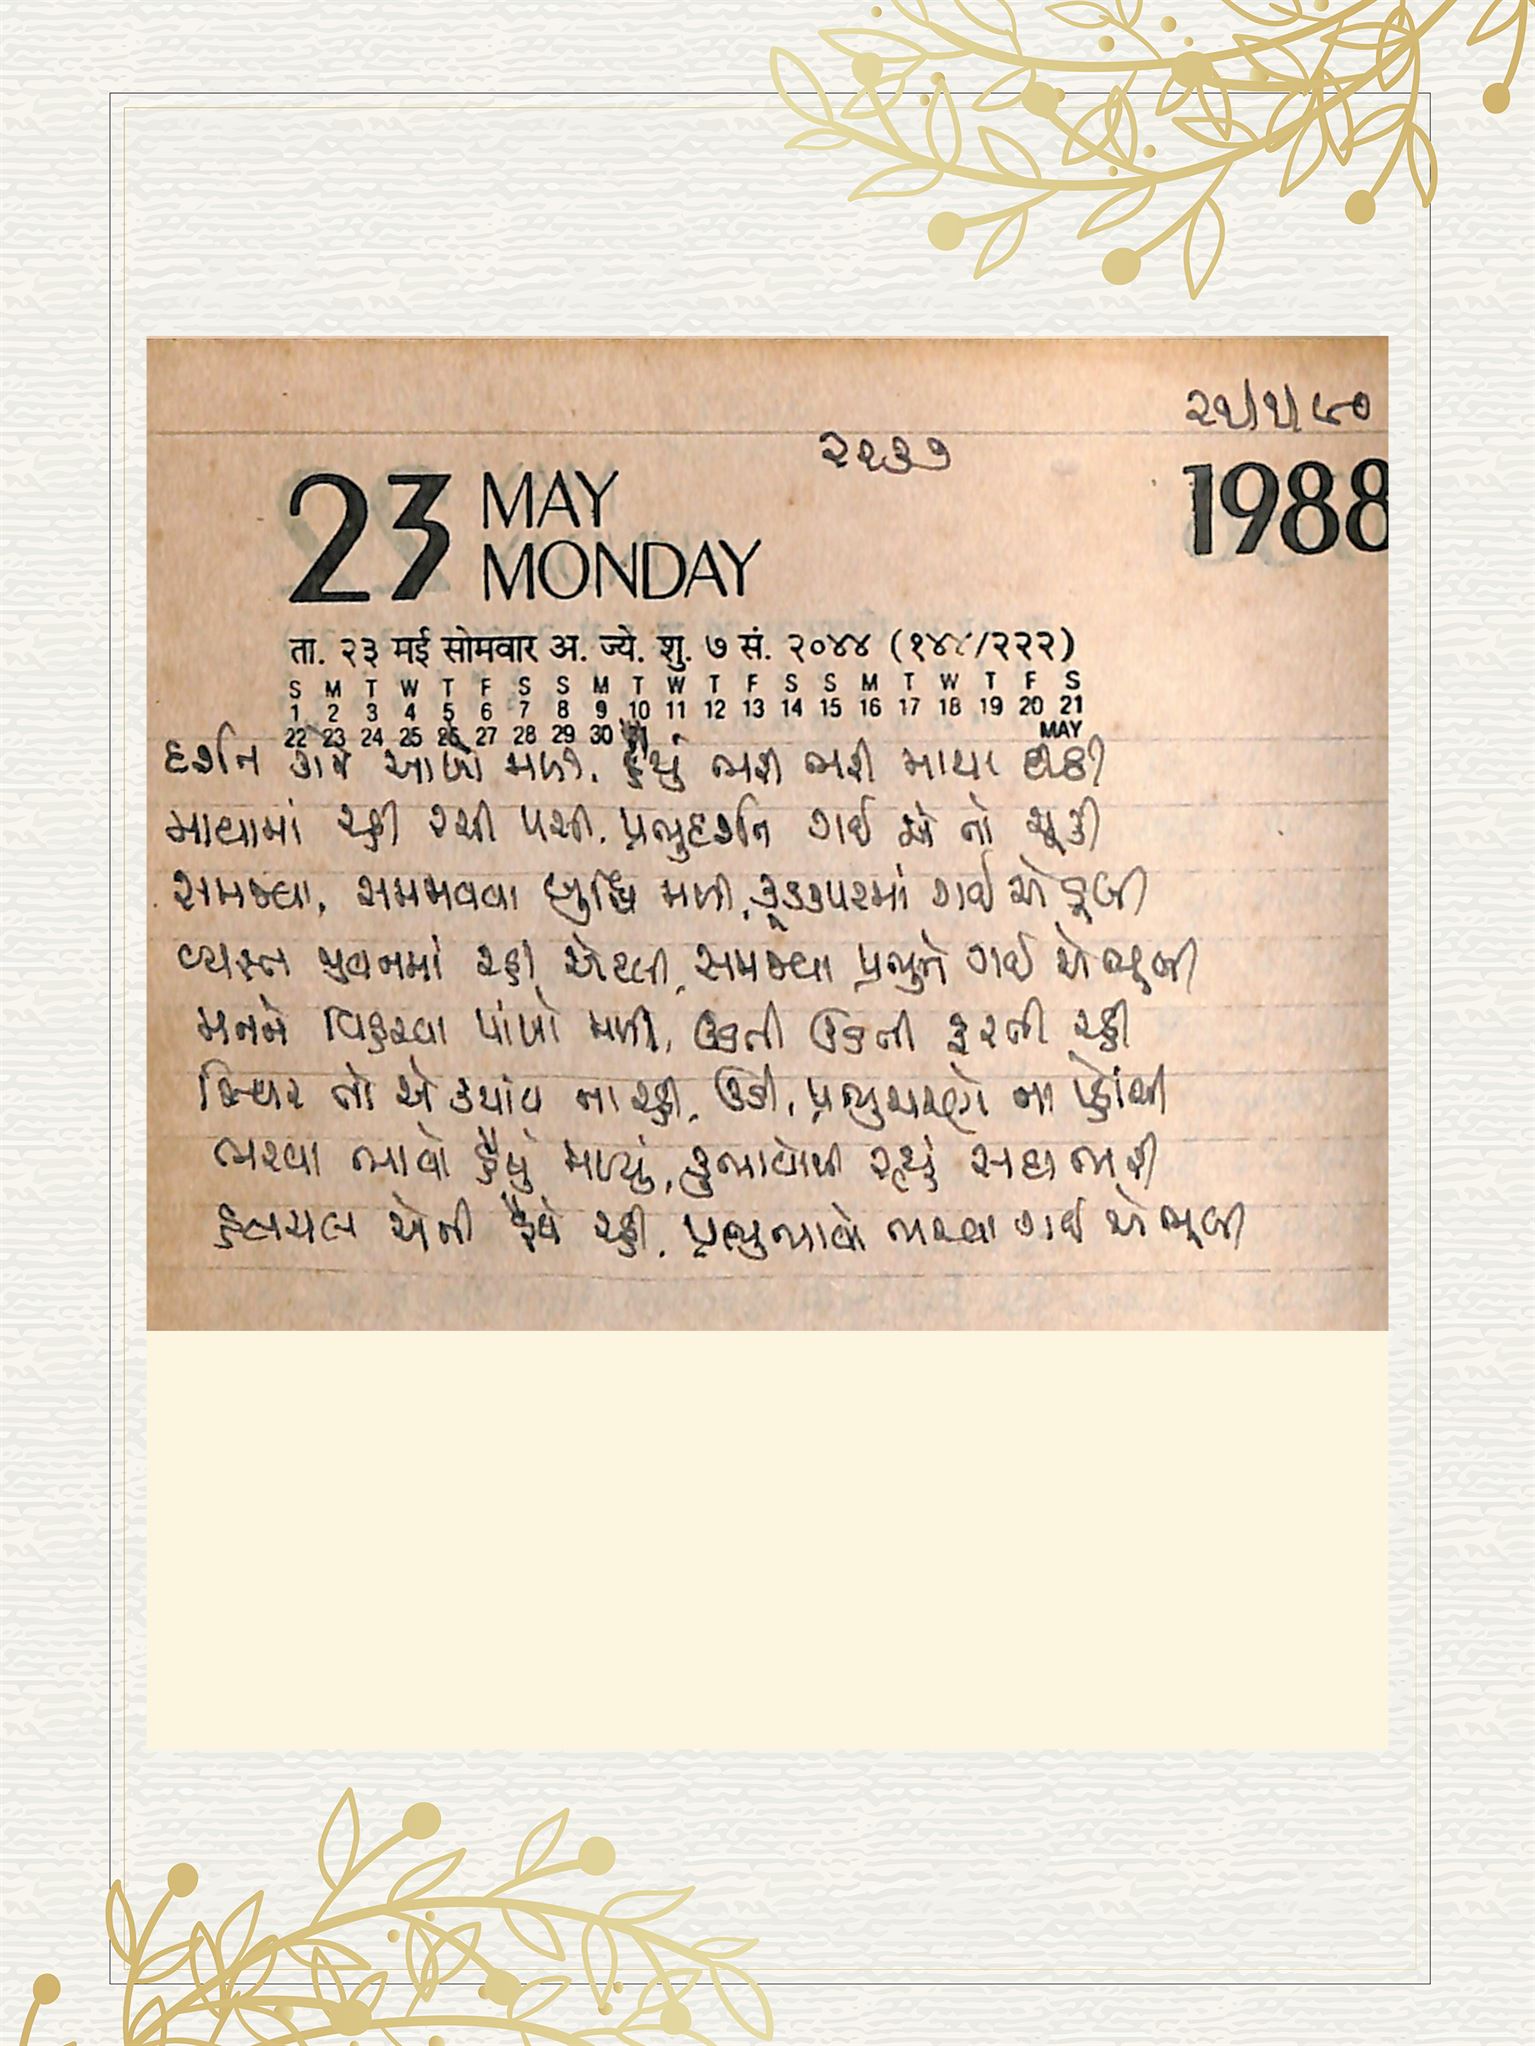 ૨૫/૧/૯૦
૨૨૩૭
23 MAY 1988
MONDAY
ता. २३ मई सोमवार अ. ज्ये. शु. ७ सं. २०४४ (१४४/२२२)
S M T W T F S S M T W T F S S M T W T F S
1 2 3 4 5 6 7 8 9 10 11 12 13 14 15 16 17 18 19 20 21
22 23 24 25 26 27 28 29 30 31 MAY
દર્શન કાજે આંખો મળી, હૈયું ભરી ભરી માયા દીઠી
માયામાં રહી રચી પચી, પ્રભુદર્શન ગઈ એ તો ચૂકી
સમજવા, સમજાવવા બુદ્ધિ મળી, કૂડકપટમાં ગઈ એ ડૂબી
વ્યસ્ત જીવનમાં રહી એટલી, સમજવા પ્રભુને ગઈ એ ભૂલી
મનને વિહરવા પાંખો મળી, ઊડતી ઊડતી ફરતી રહી
સ્થિર તો એ ક્યાંય ના રહી, ઊડી, પ્રભુચરણે ના પહોંચી
ભરવા ભાવો હૈયું મળ્યું, કુભાવોથી રહ્યું સદા ભરી
હલચલ એની હૈયે રહી, પ્રભુભાવો ભરવા ગઈ એ ભૂલી